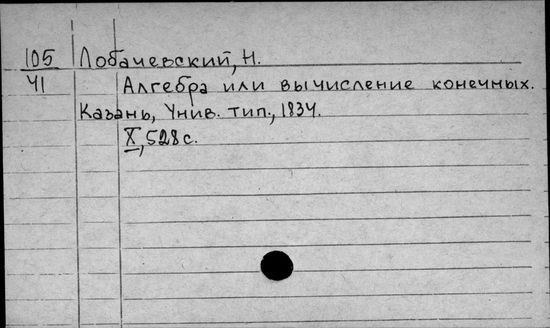 105 Лобачевский, Н.
41 Алгебра или вычисление конечных.
Казань, Унив. тип., 1834.
X, 528 с.